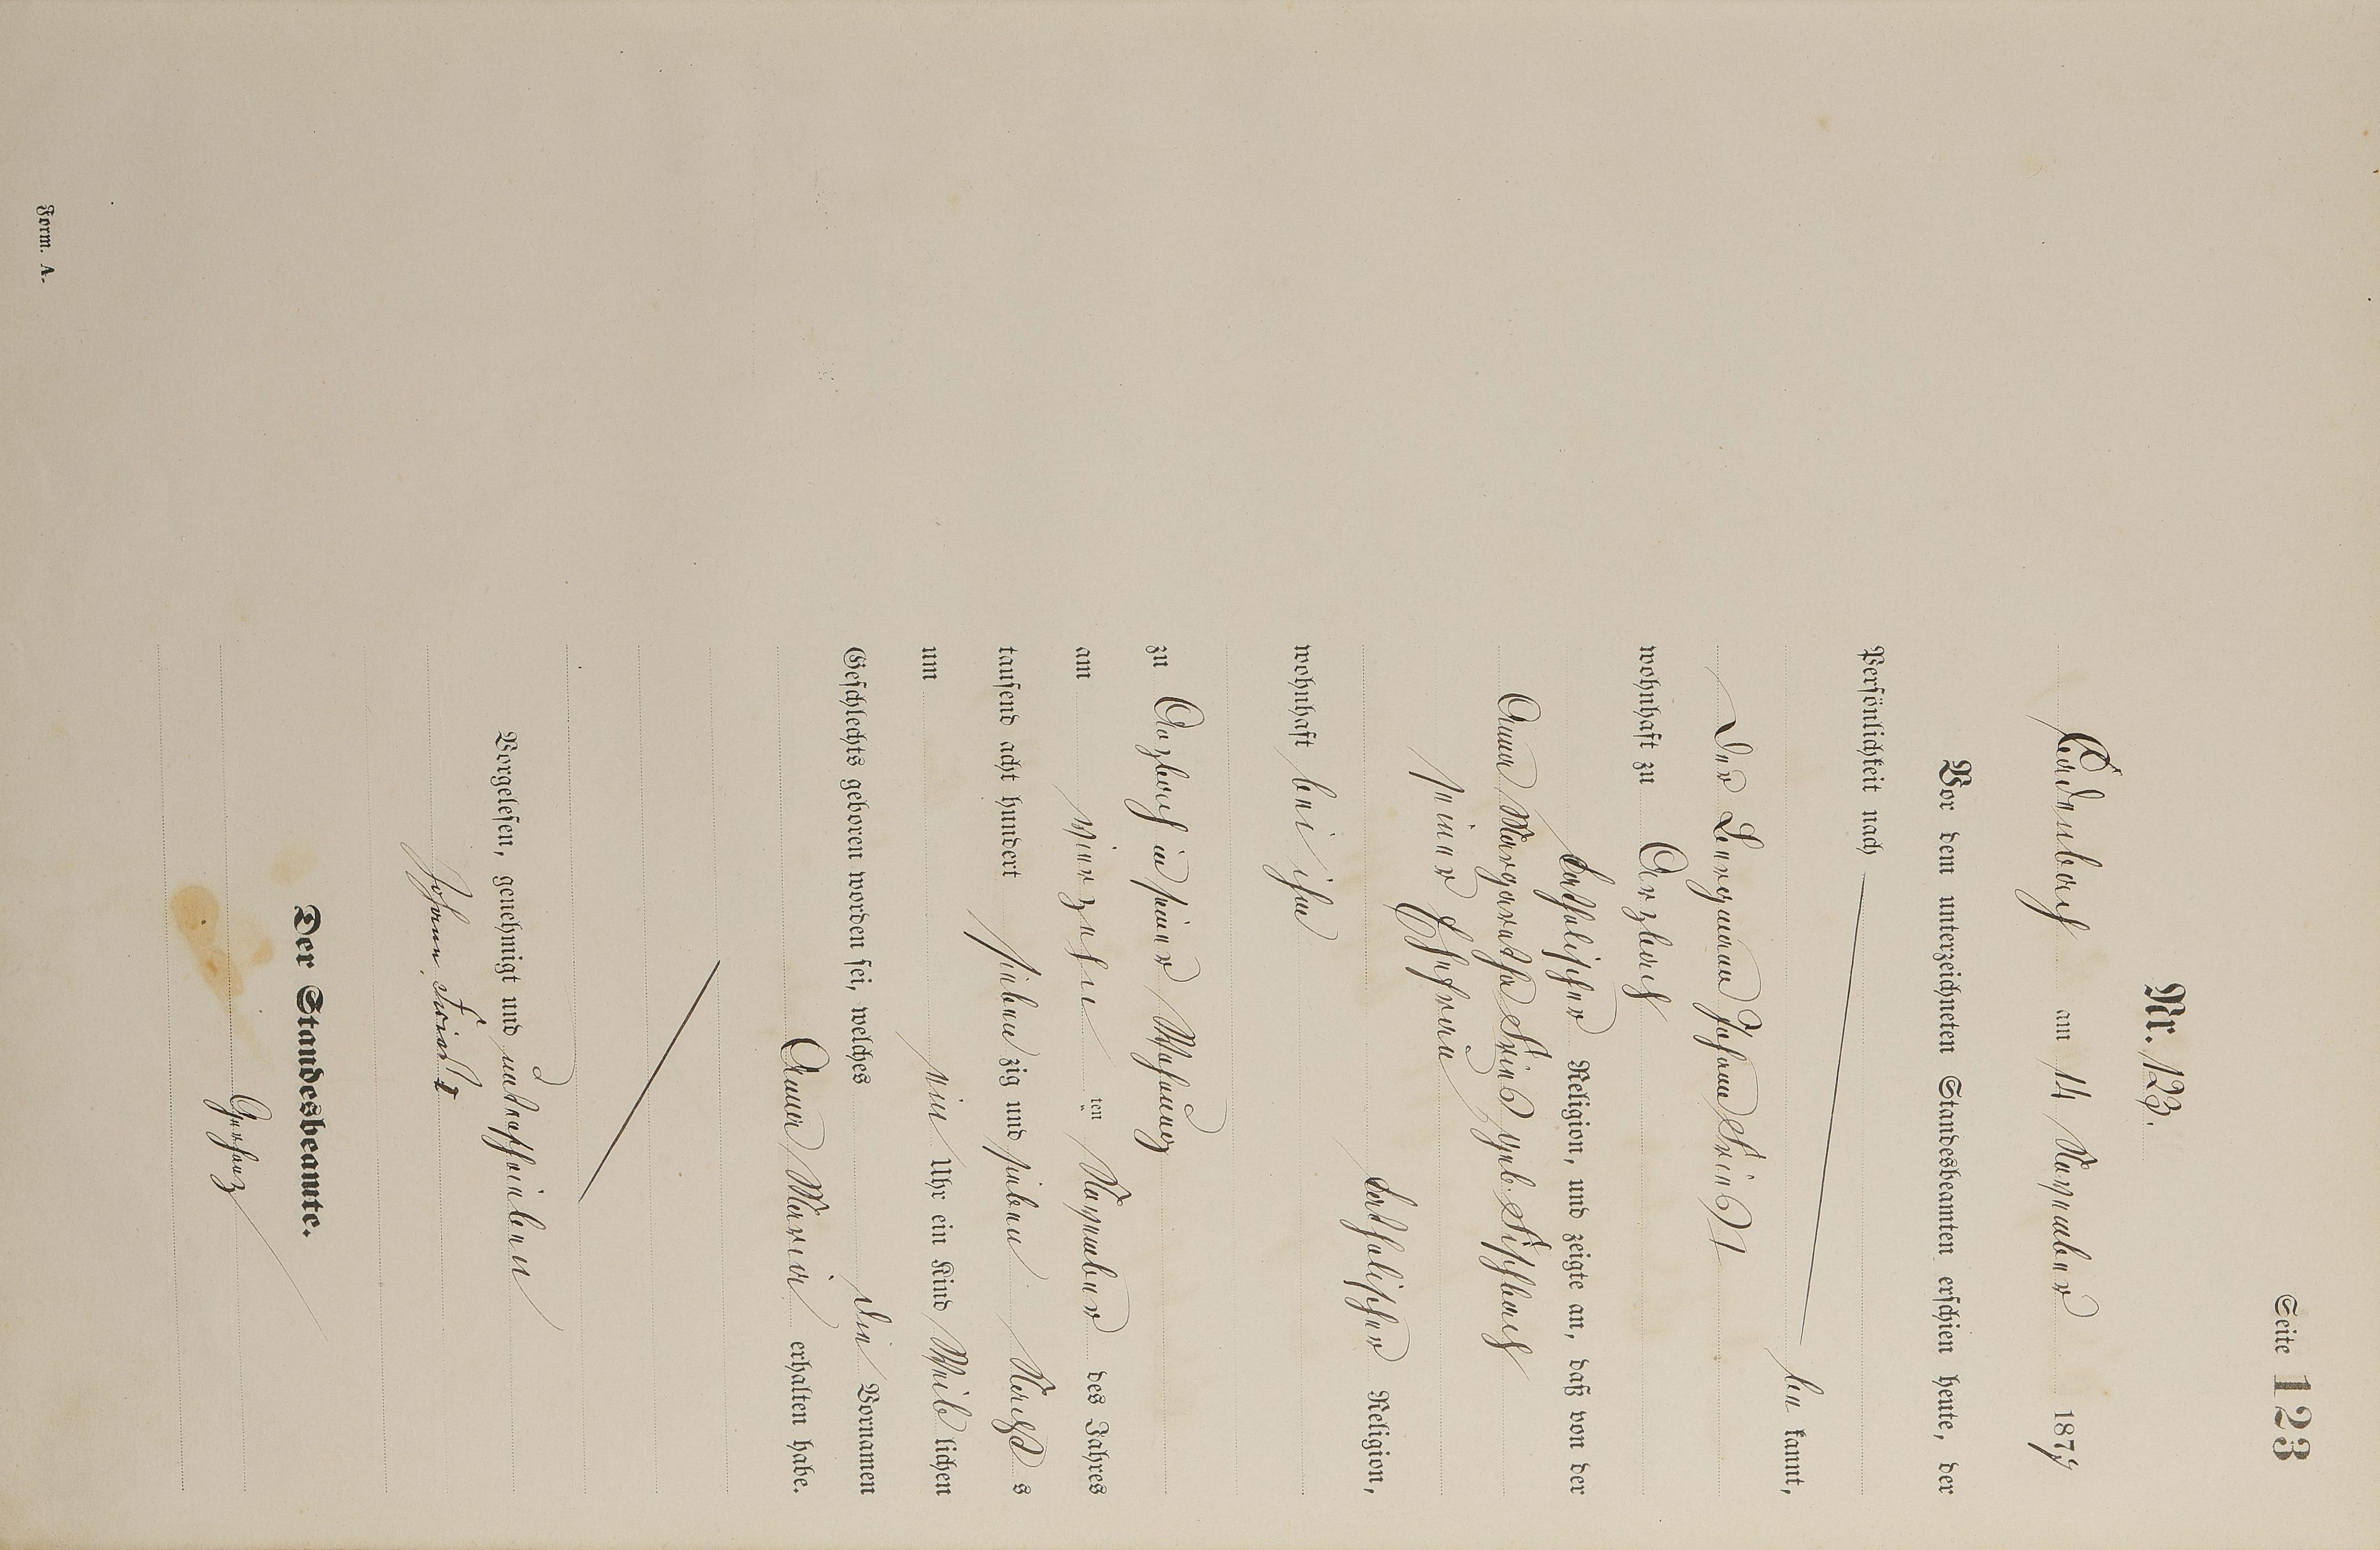 Seite 123
Nr. 123.
Cadenbach am 14 November 1877
Vor dem unterzeichneten Standesbeamten erschien heute, der
Persönlichkeit nach
be kannt,
der Bergmann Johann Fries I
wohnhaft zu Arzbach
katholischer Religion, und zeigte an, daß von der
Anna Margaretha geb. Fischbach
seiner Ehefrau
katholischer Religion,
wohnhaft bei ihm
zu Arzbach in seiner Wohnung
am vierzehn ten November des Jahres
tausend acht hundert sieben zig und sieben Nachts
um ein Uhr ein Kind Weib lichen
Geschlechts geboren worden sei, welches die Vornamen
Anna Maria erhalten habe.
Vorgelesen, genehmigt und unterschrieben
Johann
Der Standesbeamte.
Form. A.